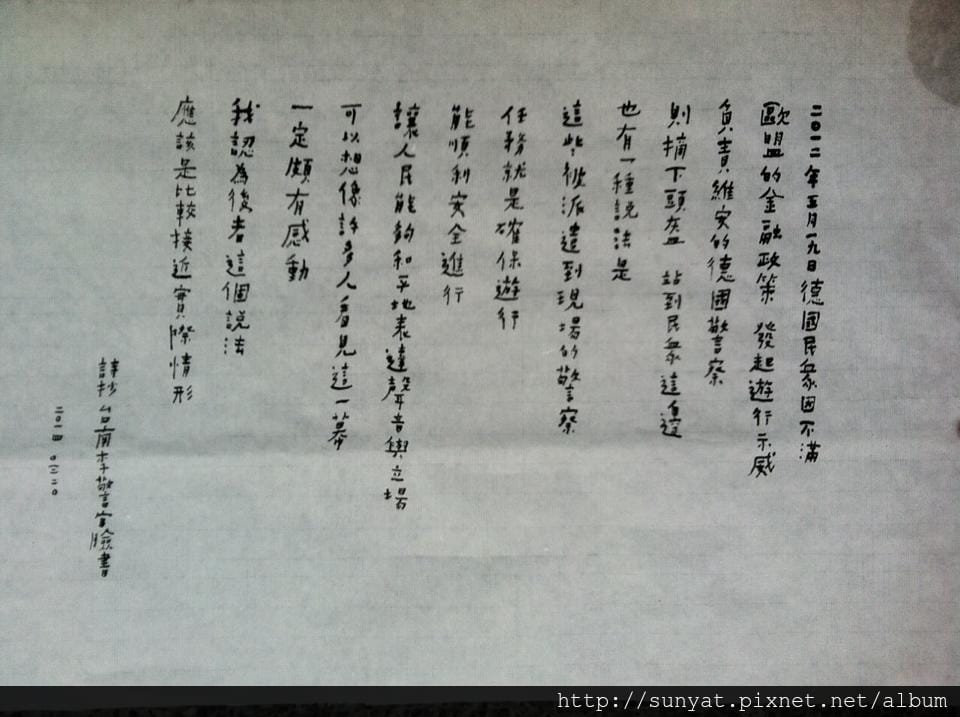 二〇一二年五月一九日德國民眾因不滿
歐盟的金融政策 發起遊行示威
負責維安的德國警察
則摘下頭盔 站到民眾這邊
也有一種說法是
這些被派遣到現場的警察
任務就是確保遊行
能順利安全進行
讓人民能夠和平地表達聲音與立場
可以想像許多人看見這一幕
一定頗有感動
我認為後者這個說法
應該是比較接近實際情形
抄台南李警官臉書
二〇一四 〇三二〇
http://sunyat.pixnet.net/album